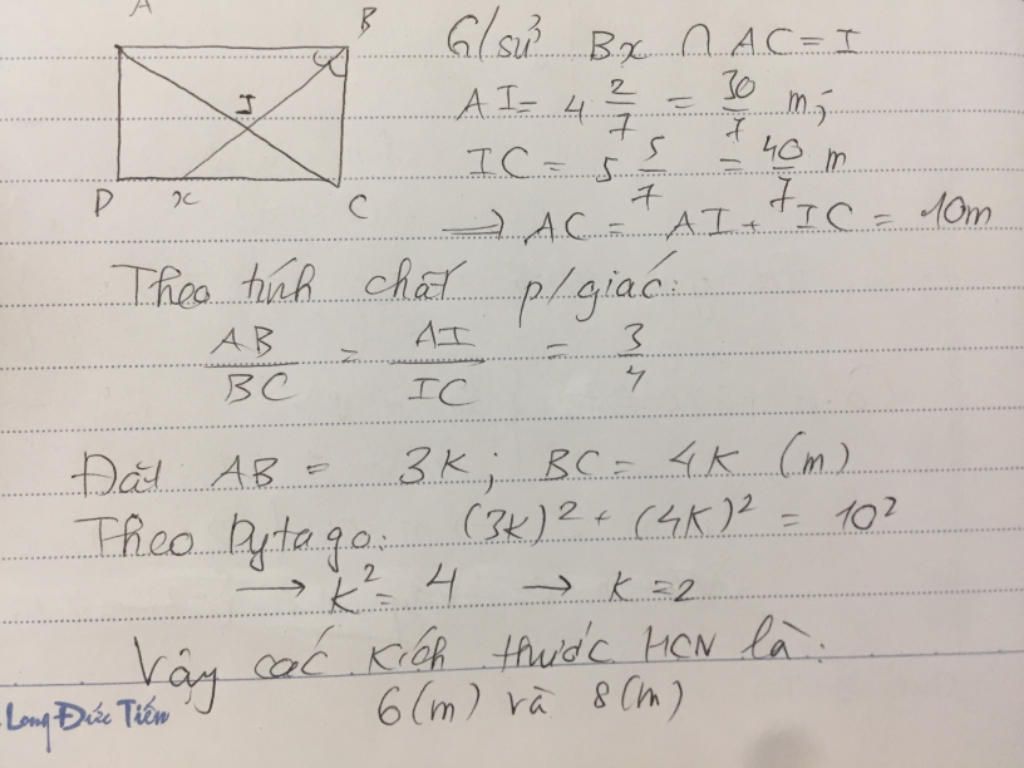 A
B
I
D
x
C
G/sử Bx ∩ AC = I
AI = 4 2/7 = 30/7 m;
IC = 5 5/7 = 40/7 m
⟹ AC = AI + IC = 10m
Theo tính chất p/giác:
AB/BC = AI/IC = 3/4
Đặt AB = 3K; BC = 4K (m)
Theo Pytago: (3K)² + (4K)² = 10²
→ K² = 4 → K = 2
Vậy các kích thước HCN là:
6(m) và 8(m)
Long Đức Tiến